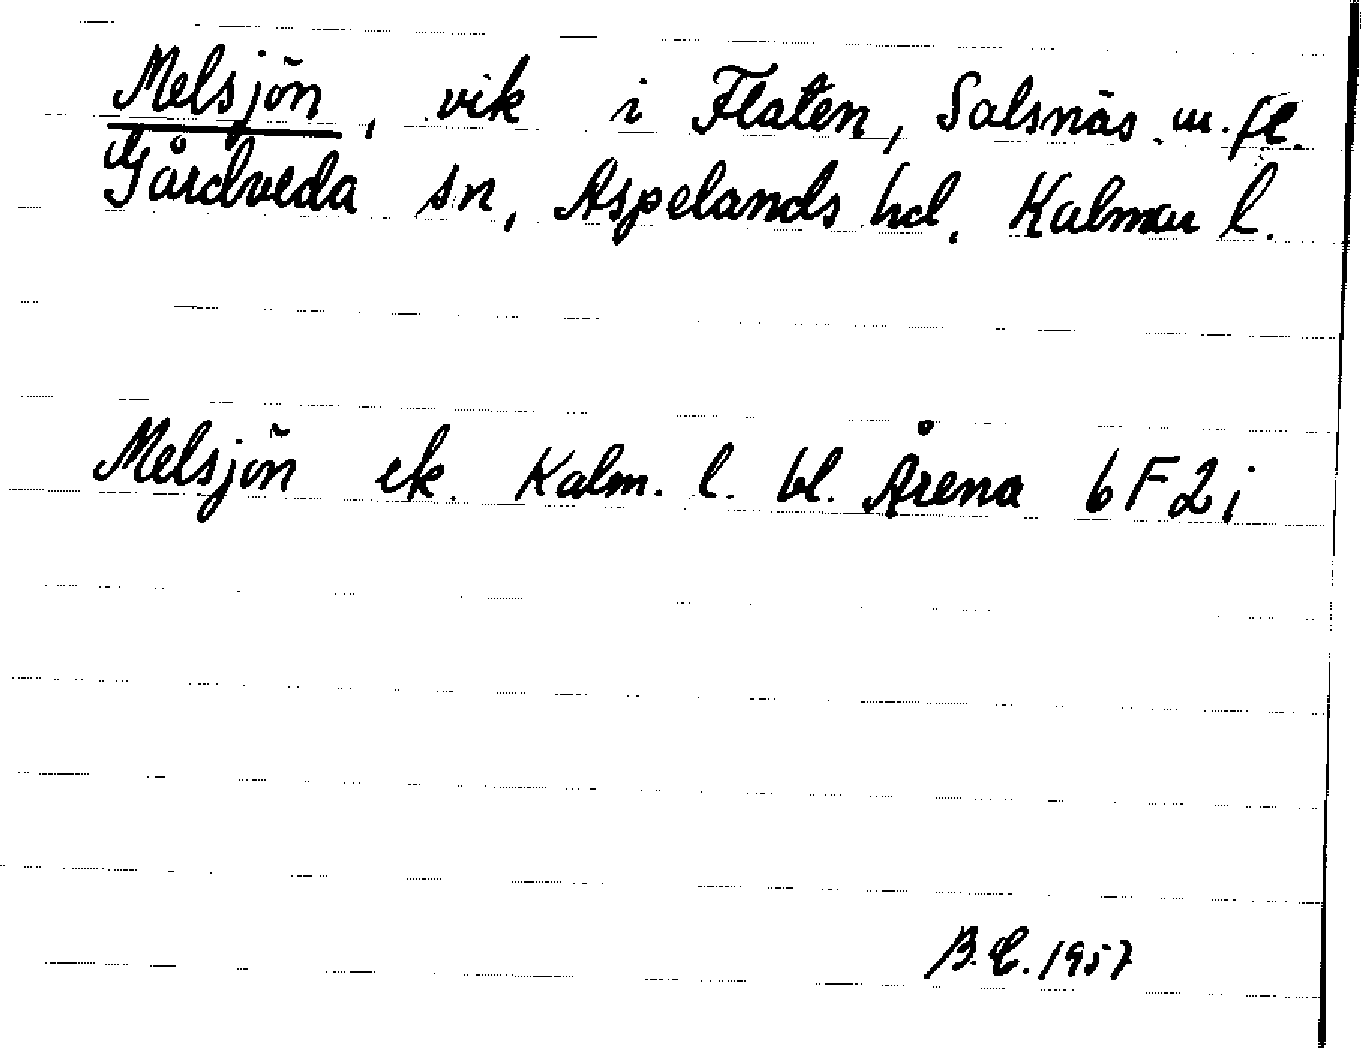 Melsjön, vik i Flaten, Salsnäs m.fl.
Gårdveda sn, Aspelands hd. Kalmar l.
Melsjön ek. Kalm. l. bl. Årena 6F2i
B.E. 1957